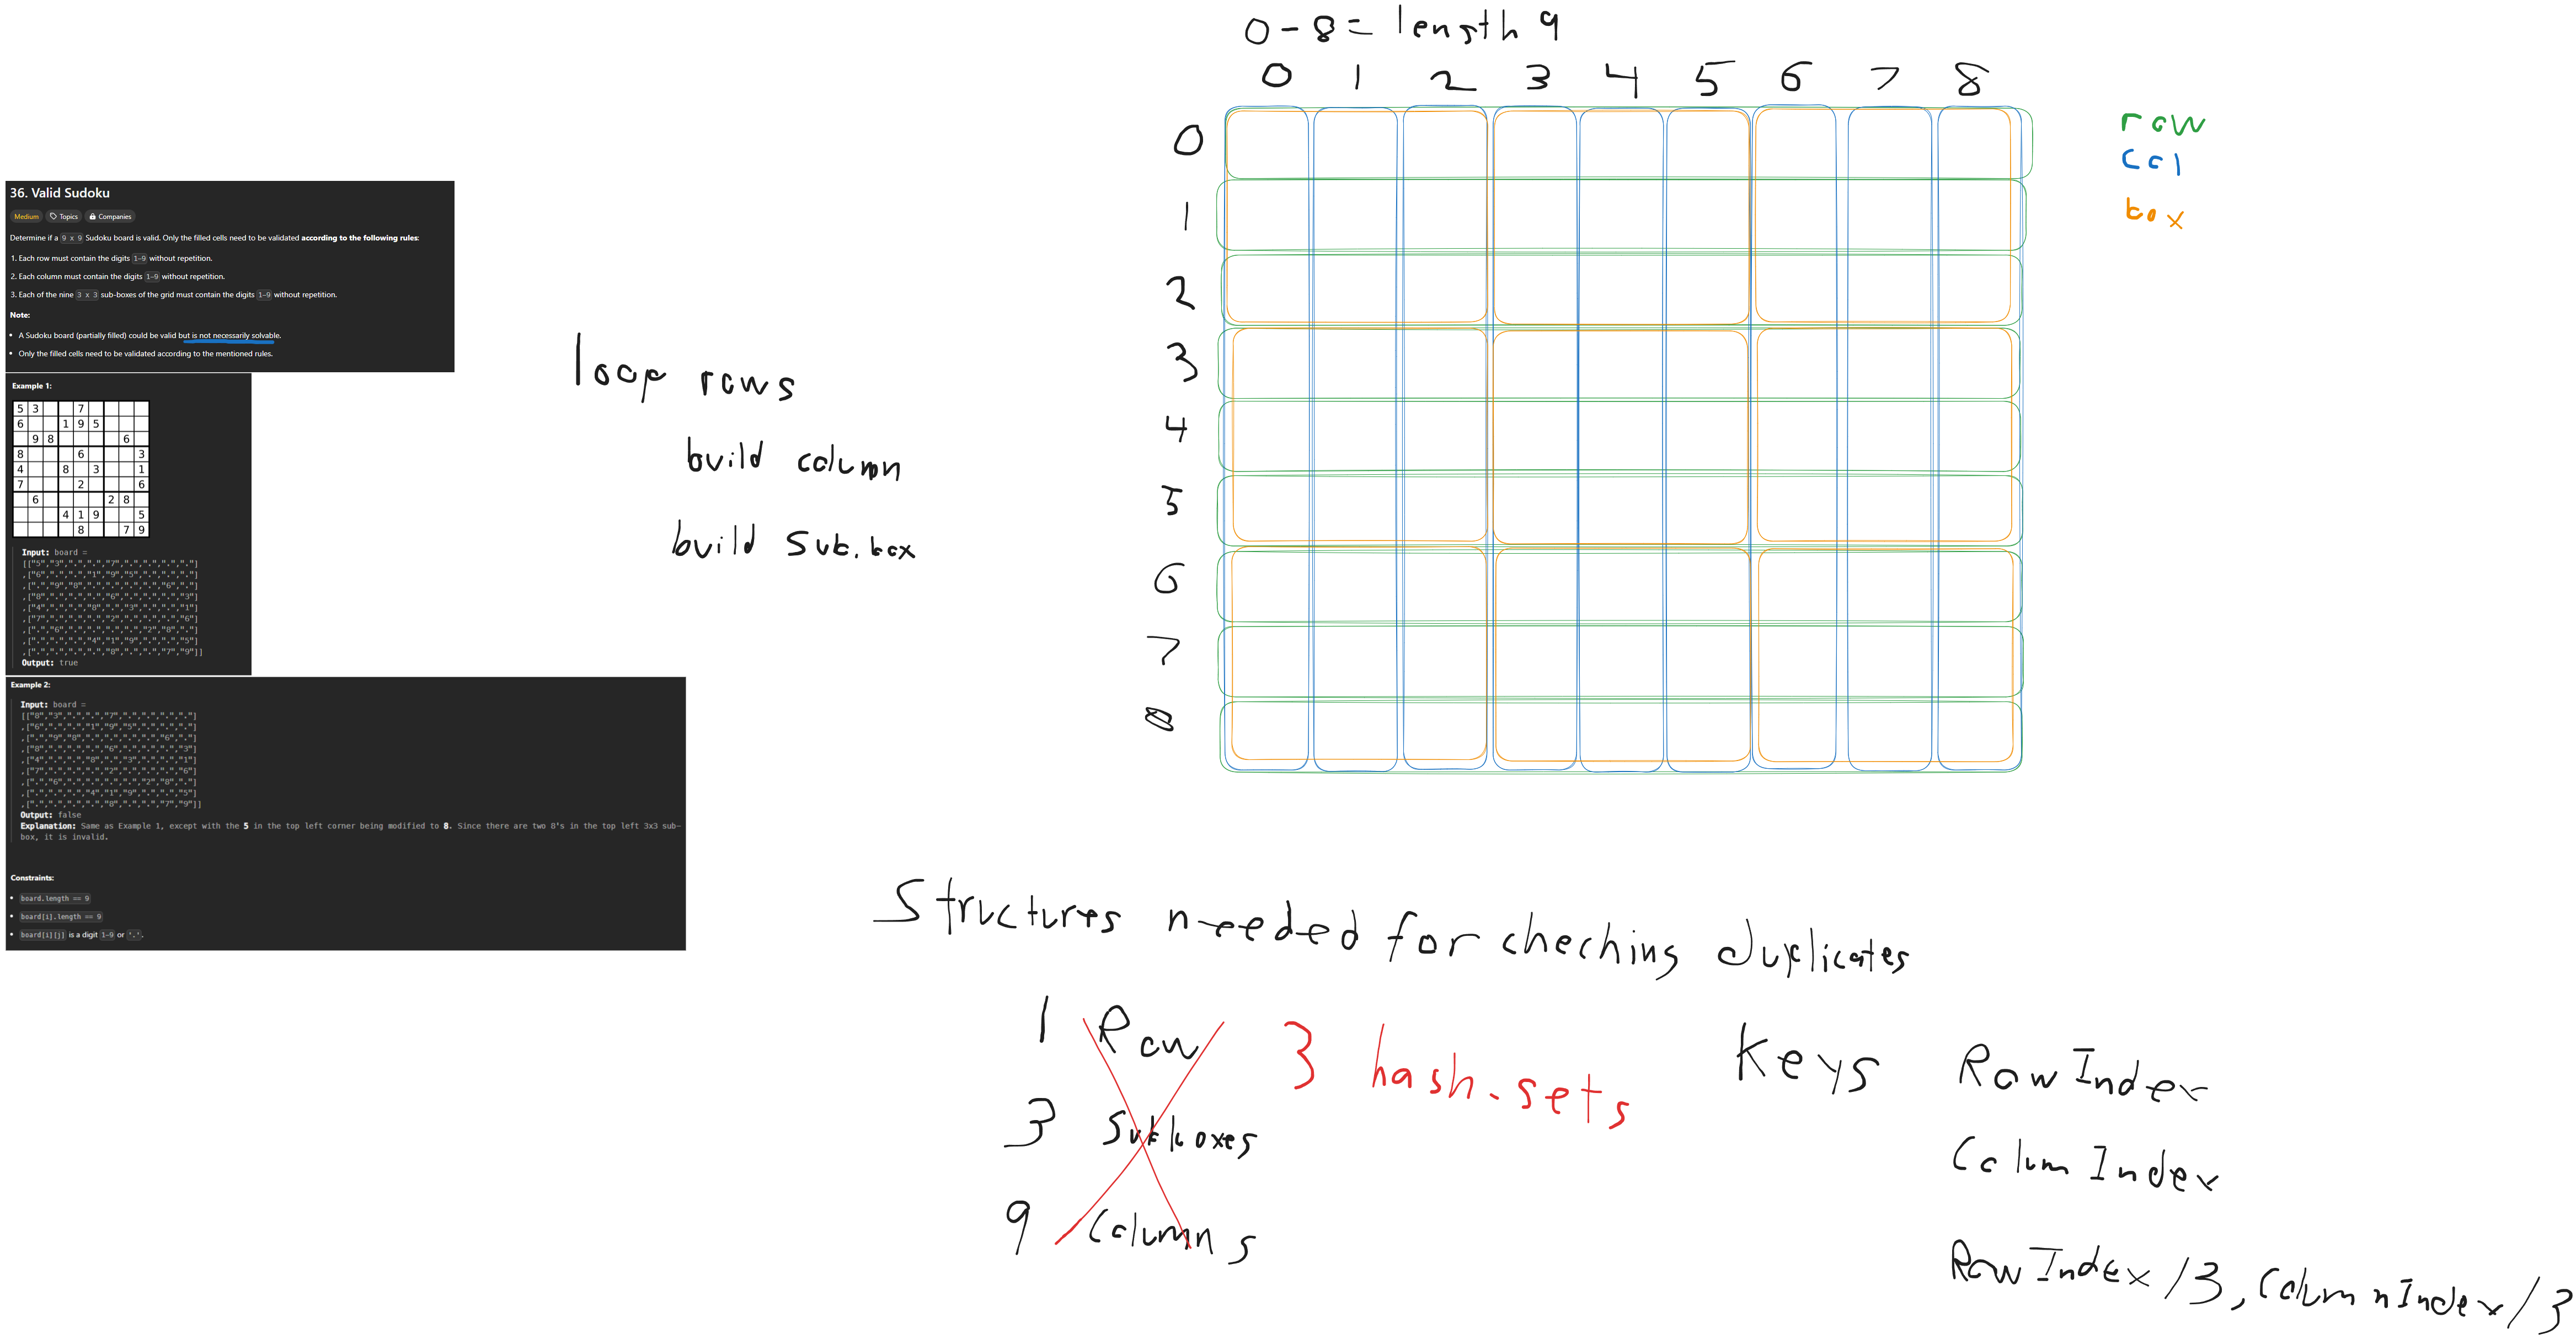 36. Valid Sudoku
Medium Topics Companies
Determine if a 9 x 9 Sudoku board is valid. Only the filled cells need to be validated according to the following rules:
1. Each row must contain the digits 1-9 without repetition.
2. Each column must contain the digits 1-9 without repetition.
3. Each of the nine 3 x 3 sub-boxes of the grid must contain the digits 1-9 without repetition.
Note:
• A Sudoku board (partially filled) could be valid but is not necessarily solvable.
• Only the filled cells need to be validated according to the mentioned rules.
Example 1:
5 3 7
6 1 9 5
9 8 6
8 6 3
4 8 3 1
7 2 6
6 2 8
4 1 9 5
8 7 9
Input: board =
[["5","3",".",".","7",".",".",".","."]
,["6",".",".","1","9","5",".",".","."]
,[".","9","8",".",".",".",".","6","."]
,["8",".",".",".","6",".",".",".","3"]
,["4",".",".","8",".","3",".",".","1"]
,["7",".",".",".","2",".",".",".","6"]
,[".","6",".",".",".",".","2","8","."]
,[".",".",".","4","1","9",".",".","5"]
,[".",".",".",".","8",".",".","7","9"]]
Output: true
Example 2:
Input: board =
[["8","3",".",".","7",".",".",".","."]
,["6",".",".","1","9","5",".",".","."]
,[".","9","8",".",".",".",".","6","."]
,["8",".",".",".","6",".",".",".","3"]
,["4",".",".","8",".","3",".",".","1"]
,["7",".",".",".","2",".",".",".","6"]
,[".","6",".",".",".",".","2","8","."]
,[".",".",".","4","1","9",".",".","5"]
,[".",".",".",".","8",".",".","7","9"]]
Output: false
Explanation: Same as Example 1, except with the 5 in the top left corner being modified to 8. Since there are two 8's in the top left 3x3 sub-
box, it is invalid.
Constraints:
• board.length == 9
• board[i].length == 9
• board[i][j] is a digit 1-9 or '.'.
loop rows
build column
build sub.box
0 - 8 = length 9
0 1 2 3 4 5 6 7 8
0
1
2
3
4
5
6
7
8
row
col
box
Structures needed for cheching duplicates
1 Row
3 Subboxes
9 Columns
3 hash-sets
Keys
RowIndex
ColumIndex
RowIndex/3, ColumnIndex/3